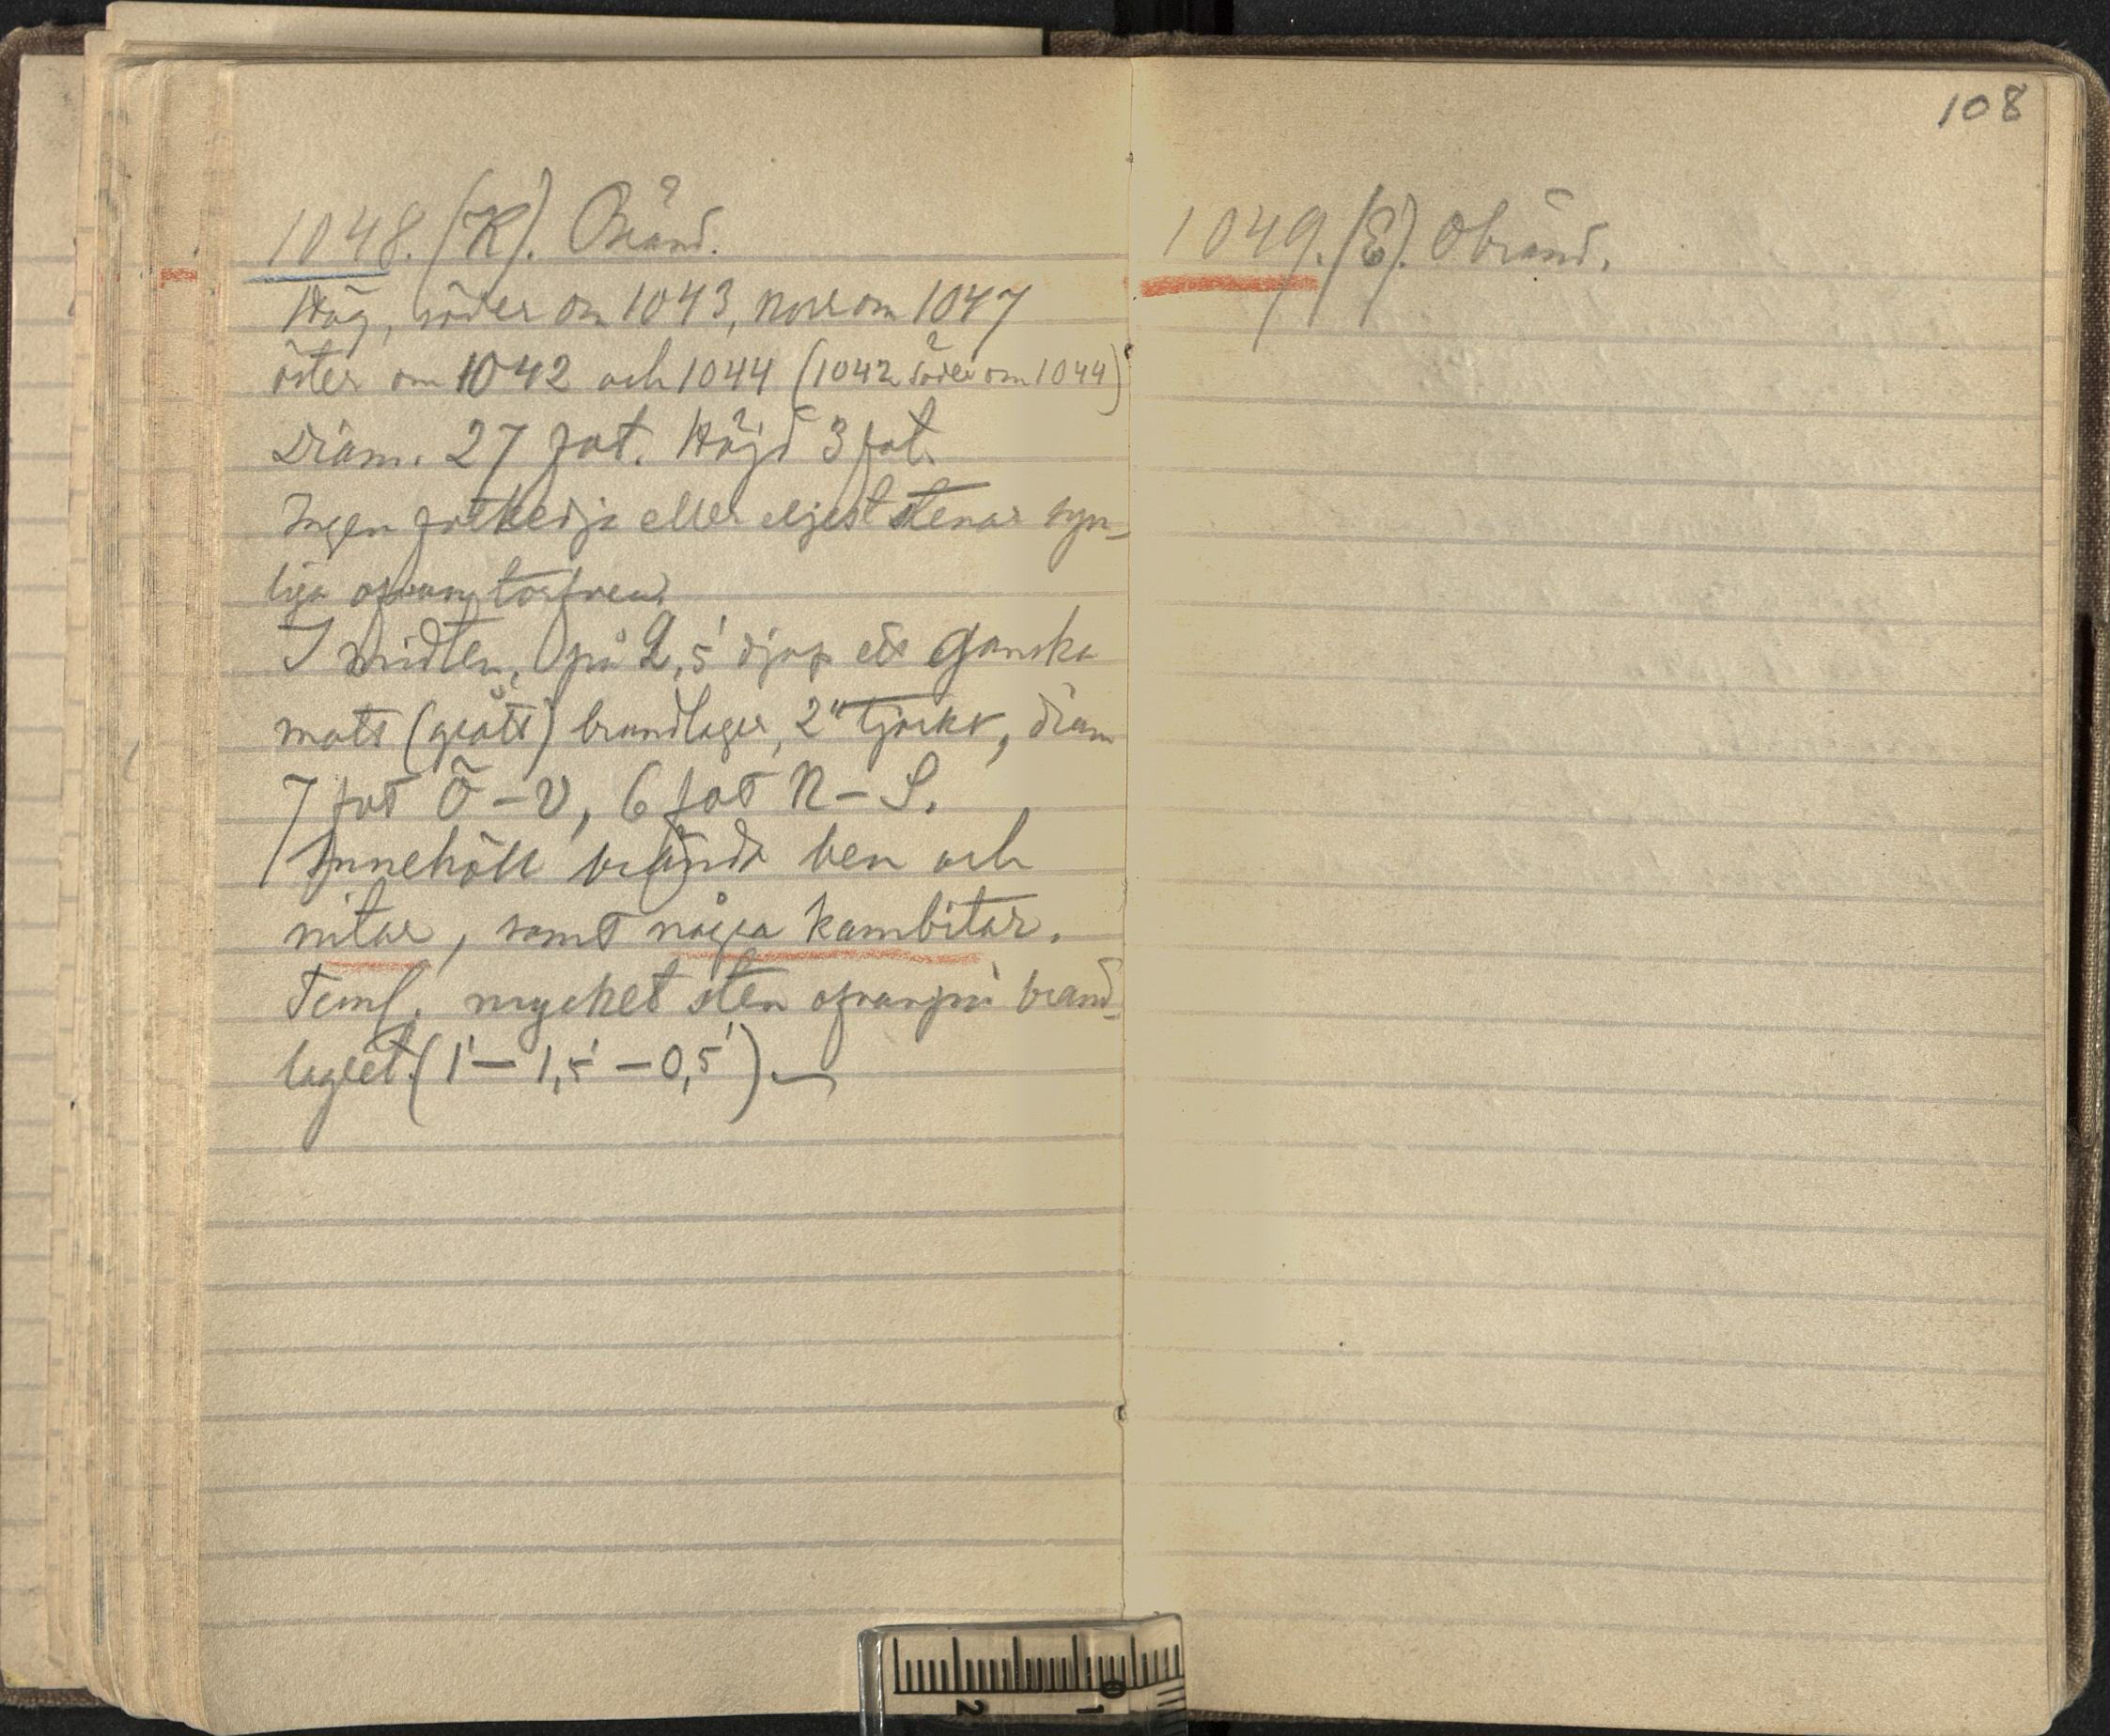 1048. (K). Bränd.
Hög, söder om 1043, norr om 1047
öster om 1042 och 1044 (1042 söder om 1044)
Diam. 27 fot. Höjd 3 fot.
Ingen fotkedja eller eljest stenar syn-
liga ofvan torfven.
I midten, på 2,5' djup ett ganska
matt (grått) brandlager, 2" tjockt, diam
7 fot Ö – V, 6 fot N – S.
Innehöll brända ben och
nitar, samt några kambitar.
Teml. mycket sten ofvanpå brand-
lagret. (1' – 1,5' – 0,5')
108
1049. (E). Obränd.
2
1
0